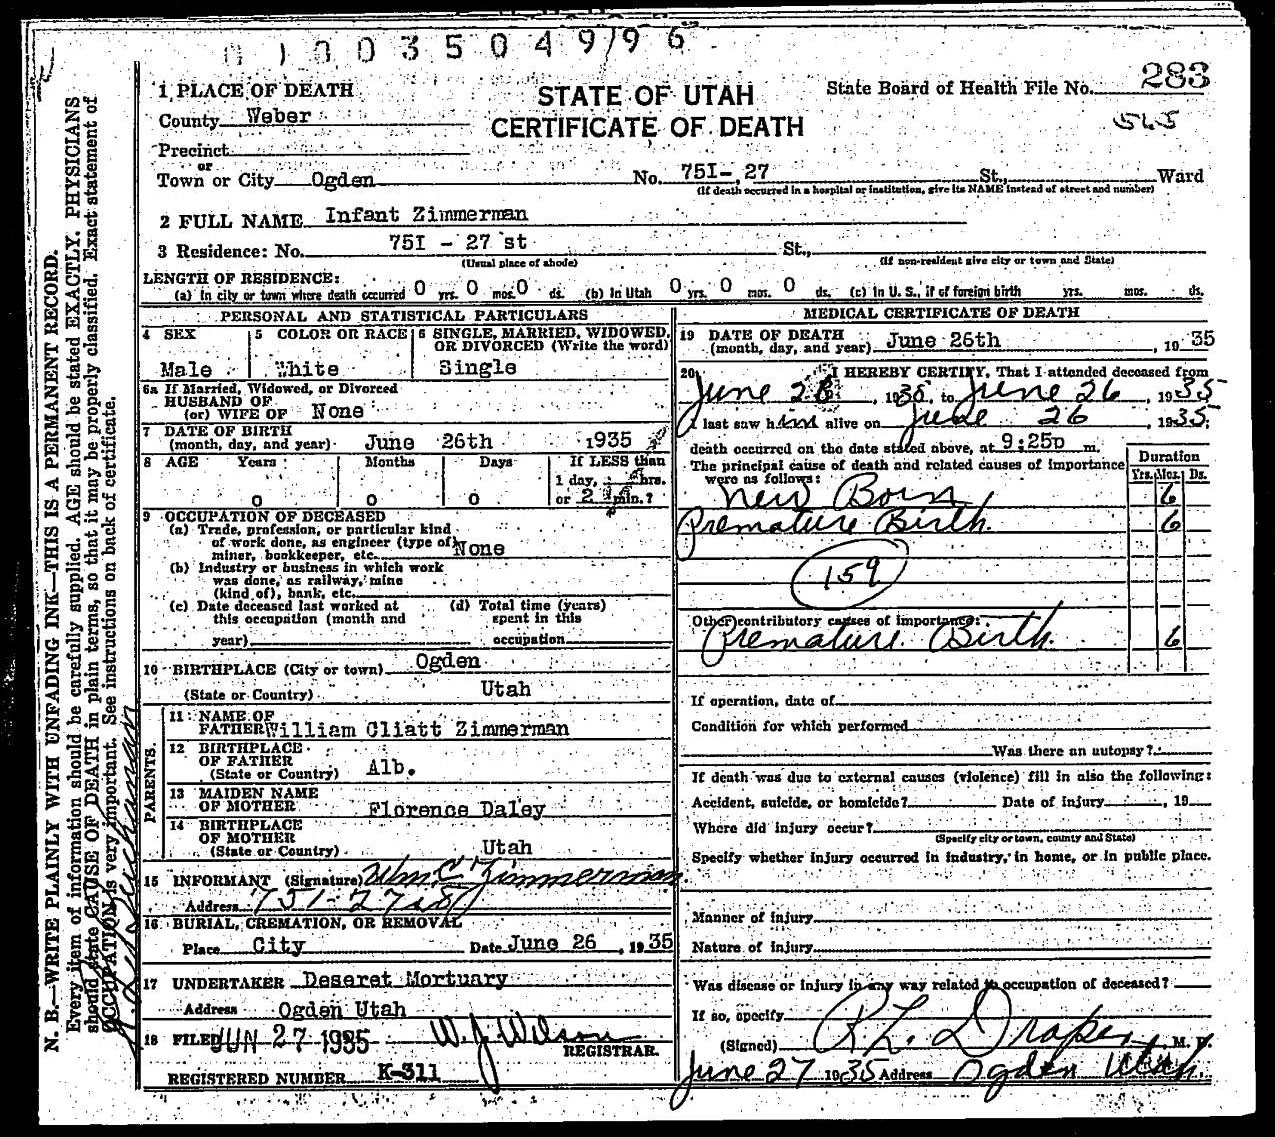 010035049796
1 PLACE OF DEATH
County Weber
Precinct
or
Town or City Ogden
STATE OF UTAH
CERTIFICATE OF DEATH
State Board of Health File No. 283
No. 75I-, 27 St., Ward
(If death occurred in a hospital or institution, give its NAME instead of street and number)
2 FULL NAME Infant Zimmerman
3 Residence: No. 75I - 27 st St.,
(Usual place of abode) (If non-resident give city or town and State)
LENGTH OF RESIDENCE:
(a) In city or town where death occurred 0 yrs. 0 mos. 0 ds. (b) In Utah 0 yrs. 0 mos. 0 ds. (c) In U. S., if of foreign birth yrs. mos. ds.
PERSONAL AND STATISTICAL PARTICULARS
4 SEX 5 COLOR OR RACE 6 SINGLE, MARRIED, WIDOWED, OR DIVORCED (Write the word)
Male White Single
6a If Married, Widowed, or Divorced
HUSBAND OF
(or) WIFE OF None
7 DATE OF BIRTH
(month, day, and year) June 26th 1935
8 AGE Years Months Days If LESS than
1 day, hrs.
0 0 0 or 2 min.?
9 OCCUPATION OF DECEASED
(a) Trade, profession, or particular kind
of work done, as engineer (type of)
miner, bookkeeper, etc. None
(b) Industry or business in which work
was done, as railway, mine
(kind of), bank, etc.
(c) Date deceased last worked at
this occupation (month and
year)
(d) Total time (years)
spent in this
occupation
10 BIRTHPLACE (City or town) Ogden
(State or Country) Utah
PARENTS.
11 NAME OF
FATHER William Cliatt Zimmerman
12 BIRTHPLACE
OF FATHER
(State or Country) Alb.
13 MAIDEN NAME
OF MOTHER Florence Daley
14 BIRTHPLACE
OF MOTHER
(State or Country) Utah
15 INFORMANT (Signature) Wm. C. Zimmerman
Address 751-27 st
16 BURIAL, CREMATION, OR REMOVAL
Place City Date June 26, 1935
17 UNDERTAKER Deseret Mortuary
Address Ogden Utah
18 FILED JUN 27 1935 W. J. Wilson
REGISTRAR.
REGISTERED NUMBER K-311
MEDICAL CERTIFICATE OF DEATH
19 DATE OF DEATH
(month, day, and year) June 26th, 1935
20 I HEREBY CERTIFY, That I attended deceased from
June 26, 1935, to June 26, 1935
I last saw him alive on June 26, 1935;
death occurred on the date stated above, at 9:25p m.
The principal cause of death and related causes of importance
were as follows:
Duration
Yrs. Mos. Ds.
New Born 6
Premature Birth. 6
159
Other contributory causes of importance:
Premature Birth. 6
If operation, date of
Condition for which performed
Was there an autopsy?
If death was due to external causes (violence) fill in also the following:
Accident, suicide, or homicide? Date of injury , 19
Where did injury occur?
(Specify city or town, county and State)
Specify whether injury occurred in industry, in home, or in public place.
Manner of injury
Nature of injury
Was disease or injury in any way related to occupation of deceased?
If so, specify
(Signed) R L. Draper, M. D.
June 27 1935 Address Ogden Utah
N. B.—WRITE PLAINLY WITH UNFADING INK—THIS IS A PERMANENT RECORD.
Every item of information should be carefully supplied. AGE should be stated EXACTLY. PHYSICIANS
should state CAUSE OF DEATH in plain terms, so that it may be properly classified. Exact statement of
OCCUPATION is very important. See instructions on back of certificate.